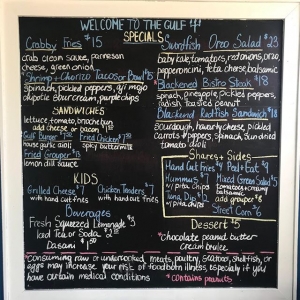 WELCOME TO THE GULF
SPECIALS
Crabby Fries $15
crab cream sauce, parmesan
cheese, green onion
Shrimp + Chorizo Tacos or Bowl
spinach, pickled peppers,
chipotle sour cream, purple chips
SANDWICHES
lettuce, tomato, brioche bun
add cheese or bacon
Gulf Burger Fried Chicken
house garlic aioli spicy buttermilk
Fried Grouper $13
lemon dill sauce
KIDS
Grilled Cheese $7 Chicken Tenders $7
with hand cut fries with hand cut fries
Beverages
Fresh Squeezed Lemonade $3
Iced Tea or Soda
Dasani $1.50
Swordfish Orzo Salad $23
baby kale, tomatoes, red onions, orzo,
pepperoncini, feta cheese, balsamic
Blackened Bistro Steak $18
spinach, pineapple, pickled peppers,
radish, toasted peanut
Blackened Redfish Sandwich $18
sourdough, havarty cheese, pickled
carrots + peppers, spinach, sun dried
tomato aioli
Shares + Sides
Hand Cut Fries $4 Peel + Eat $9
Hummus $7 Mixed Green Salad $5
w/ pita chips tomatoes + creamy
balsamic
Tuna Dip add grouper $8
w/ pita chips Street Corn $6
Dessert $5
*chocolate peanut butter
creme brulee
*consuming raw or undercooked meats, poultry, seafood, shellfish, or
eggs may increase your risk of foodborn illness, especially if you
have certain medical conditions *contains peanuts